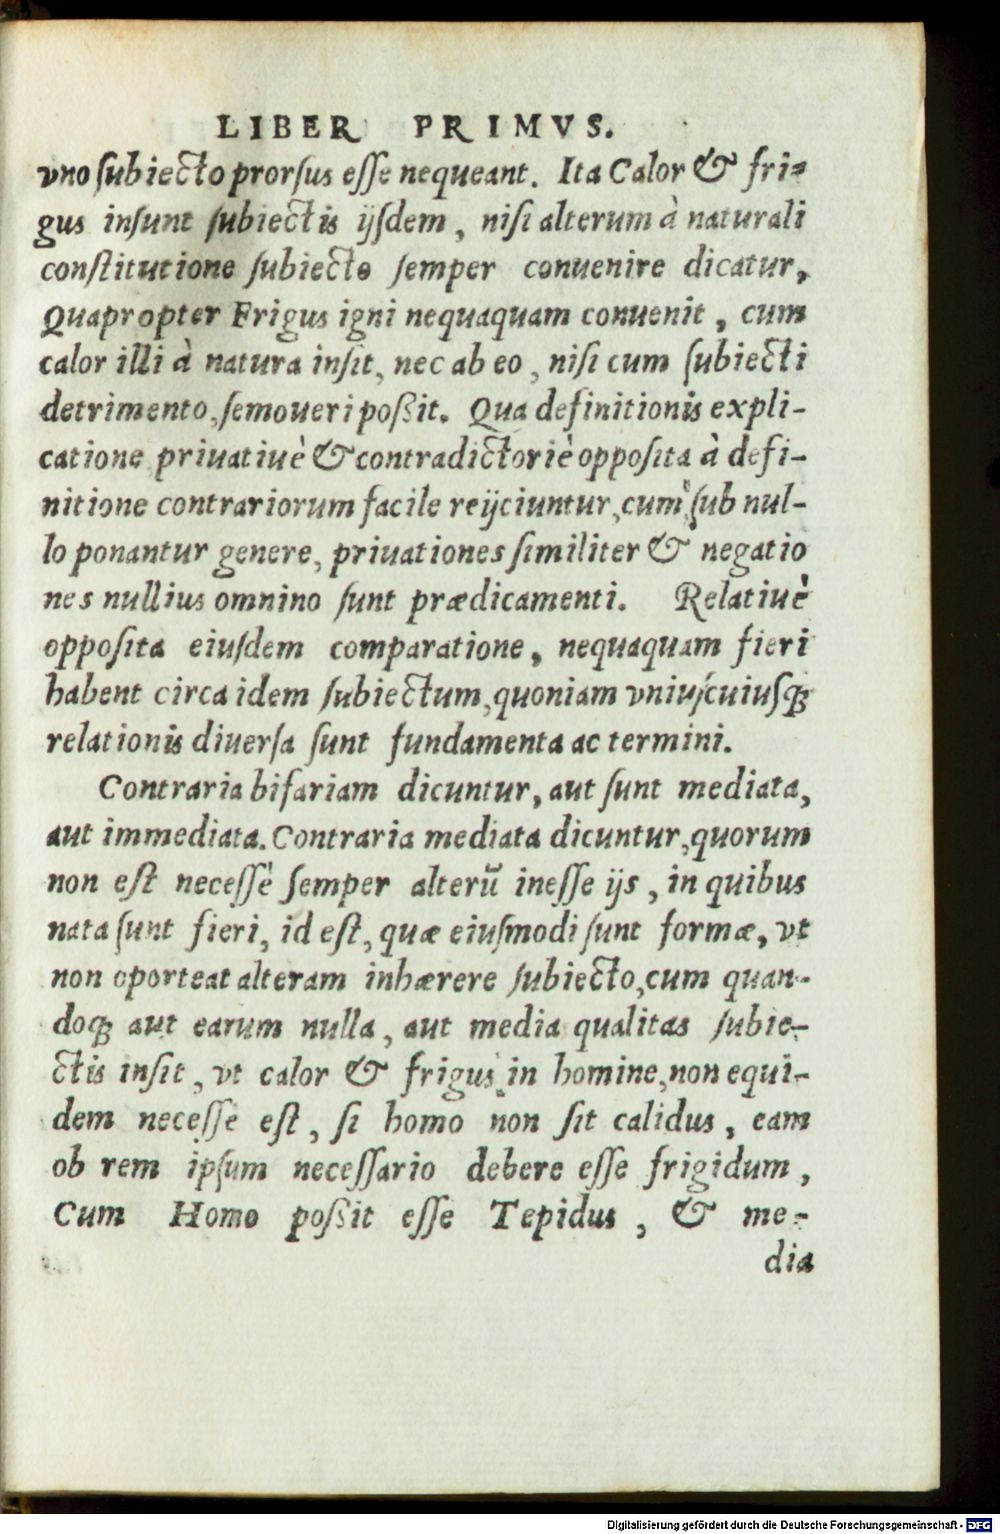 LIBER PRIMVS.
vno ſubiecto prorſus eſſe nequeant. Ita Calor & fri-
gus inſunt ſubiectis ijſdem, niſi alterum à naturali
conſtitutione ſubiecto ſemper conuenire dicatur,
Quapropter Frigus igni nequaquam conuenit, cum
calor illi à natura inſit, nec ab eo, niſi cum ſubiecti
detrimento, ſemoueri poßit. Qua definitionis expli-
catione priuatiuè & contradictoriè oppoſita à defi-
nitione contrariorum facile reijciuntur, cum ſub nul-
lo ponantur genere, priuationes ſimiliter & negatio
nes nullius omnino ſunt prædicamenti. Relatiuè
oppoſita eiuſdem comparatione, nequaquam fieri
habent circa idem ſubiectum, quoniam vniuſcuiuſꝗ
relationis diuerſa ſunt fundamenta ac termini.
Contraria bifariam dicuntur, aut ſunt mediata,
aut immediata. Contraria mediata dicuntur, quorum
non eſt neceſſè ſemper alterū ineſſe ijs, in quibus
nata ſunt fieri, id eſt, quæ eiuſmodi ſunt formæ, vt
non oporteat alteram inhærere ſubiecto, cum quan-
doꝗ aut earum nulla, aut media qualitas ſubie-
ctis inſit, vt calor & frigus in homine, non equi-
dem neceſſe eſt, ſi homo non ſit calidus, eam
ob rem ipſum neceſſario debere eſſe frigidum,
Cum Homo poßit eſſe Tepidus, & me-
dia
Digitalisierung gefördert durch die Deutsche Forschungsgemeinschaft - DFG